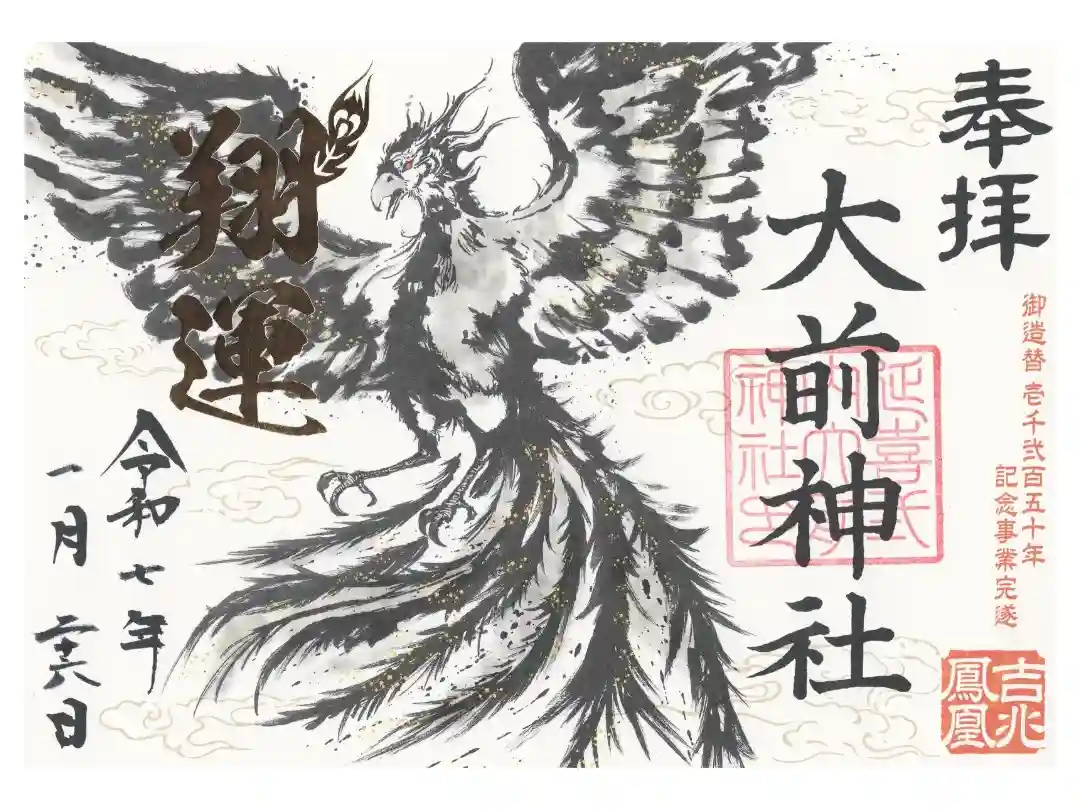 奉拝
御造替 壱千弐百五十年
記念事業完遂
吉兆
鳳凰
大前神社
延喜式
内大前
神社
翔運
令和七年
一月二十六日